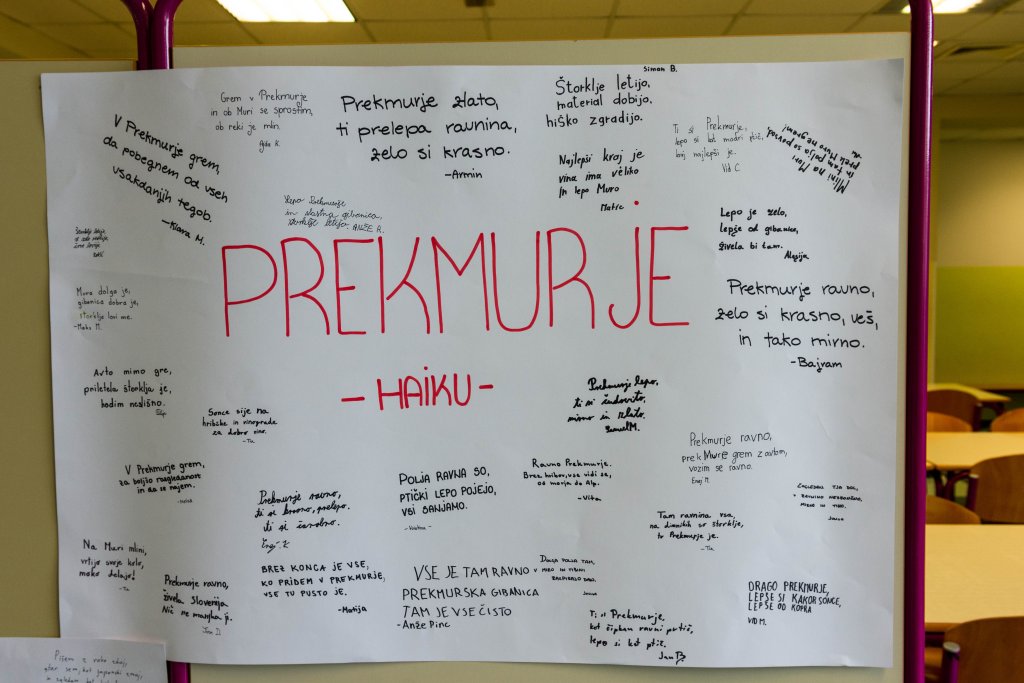 Grem v Prekmurje
in ob Muri se sprostim,
ob reki je mlin.
Ajda K.
V Prekmurje grem,
da pobegnem od vseh
vsakdanjih tegob.
-Klara M.
Prekmurje zlato,
ti prelepa ravnina,
zelo si krasno.
-Armin
Simon B.
Štorklje letijo,
material dobijo,
hiško zgradijo.
Najlepši kraj je
vina ima veliko
in lepo Muro
Matic
Ti si Prekmurje,
lepo si kot modri ptič,
kraj najlepši je.
Vid C
Mlini na Muri
in tam polja so povsod,
prek Mure
Lepo Prekmurje
in slastna gibanica,
štorklje letijo.
R.
Lepo je zelo,
lepše od gibanice,
živela bi tam.
Alesija
PREKMURJE
- HAIKU -
Mura dolga je,
gibanica dobra je,
štorklje lovi me.
-Maks M.
Prekmurje ravno,
zelo si krasno, veš,
in tako mirno.
-Bajram
Avto mimo gre,
priletela štorklja je,
hodim neslišno.
Sonce sije na
hribčke in vinograde
za dobro vino.
-Tia
Prekmurje lepo,
ti si čudovito,
mirno in zlato.
Samuel M.
V Prekmurje grem,
za boljšo razgledanost
in da se najem.
Prekmurje ravno,
ti si krasno, prelepo,
ti si čarobno.
Enej K
POLJA RAVNA SO,
PTIČKI LEPO POJEJO,
VSI SANJAMO.
Ravno Prekmurje.
Brez hribov, vse vidi se,
od morja do Alp.
-Vita
Prekmurje ravno,
prek Mure grem z avtom,
vozim se ravno.
Enej M.
ZAGLEDAM TJA DOL,
V RAVNINO NESKONČNO,
MIRNO IN TIHO.
Tam ravnina vsa,
na dimnikih so štorklje,
to Prekmurje je.
-Tia
Na Muri mlini,
vrtijo svoje kolo,
moko delajo!
Prekmurje ravno,
živela Slovenija
Nič ne manjka ji.
Jan D.
BREZ KONCA JE VSE,
KO PRIDEM V PREKMURJE,
VSE TU PUSTO JE.
-Matija
VSE JE TAM RAVNO
PREKMURSKA GIBANICA
TAM JE VSE ČISTO
-Anže Pinc
DOLGA POLJA TAM,
V MIRU IN TIŠINI
Ti si Prekmurje,
kot čipkan ravni prtič,
lepo si kot ptič.
Jan B
DRAGO PREKMURJE,
LEPŠE SI KAKOR SONCE,
LEPŠE OD KOPRA
VID M.
Pišem z roko zdaj,